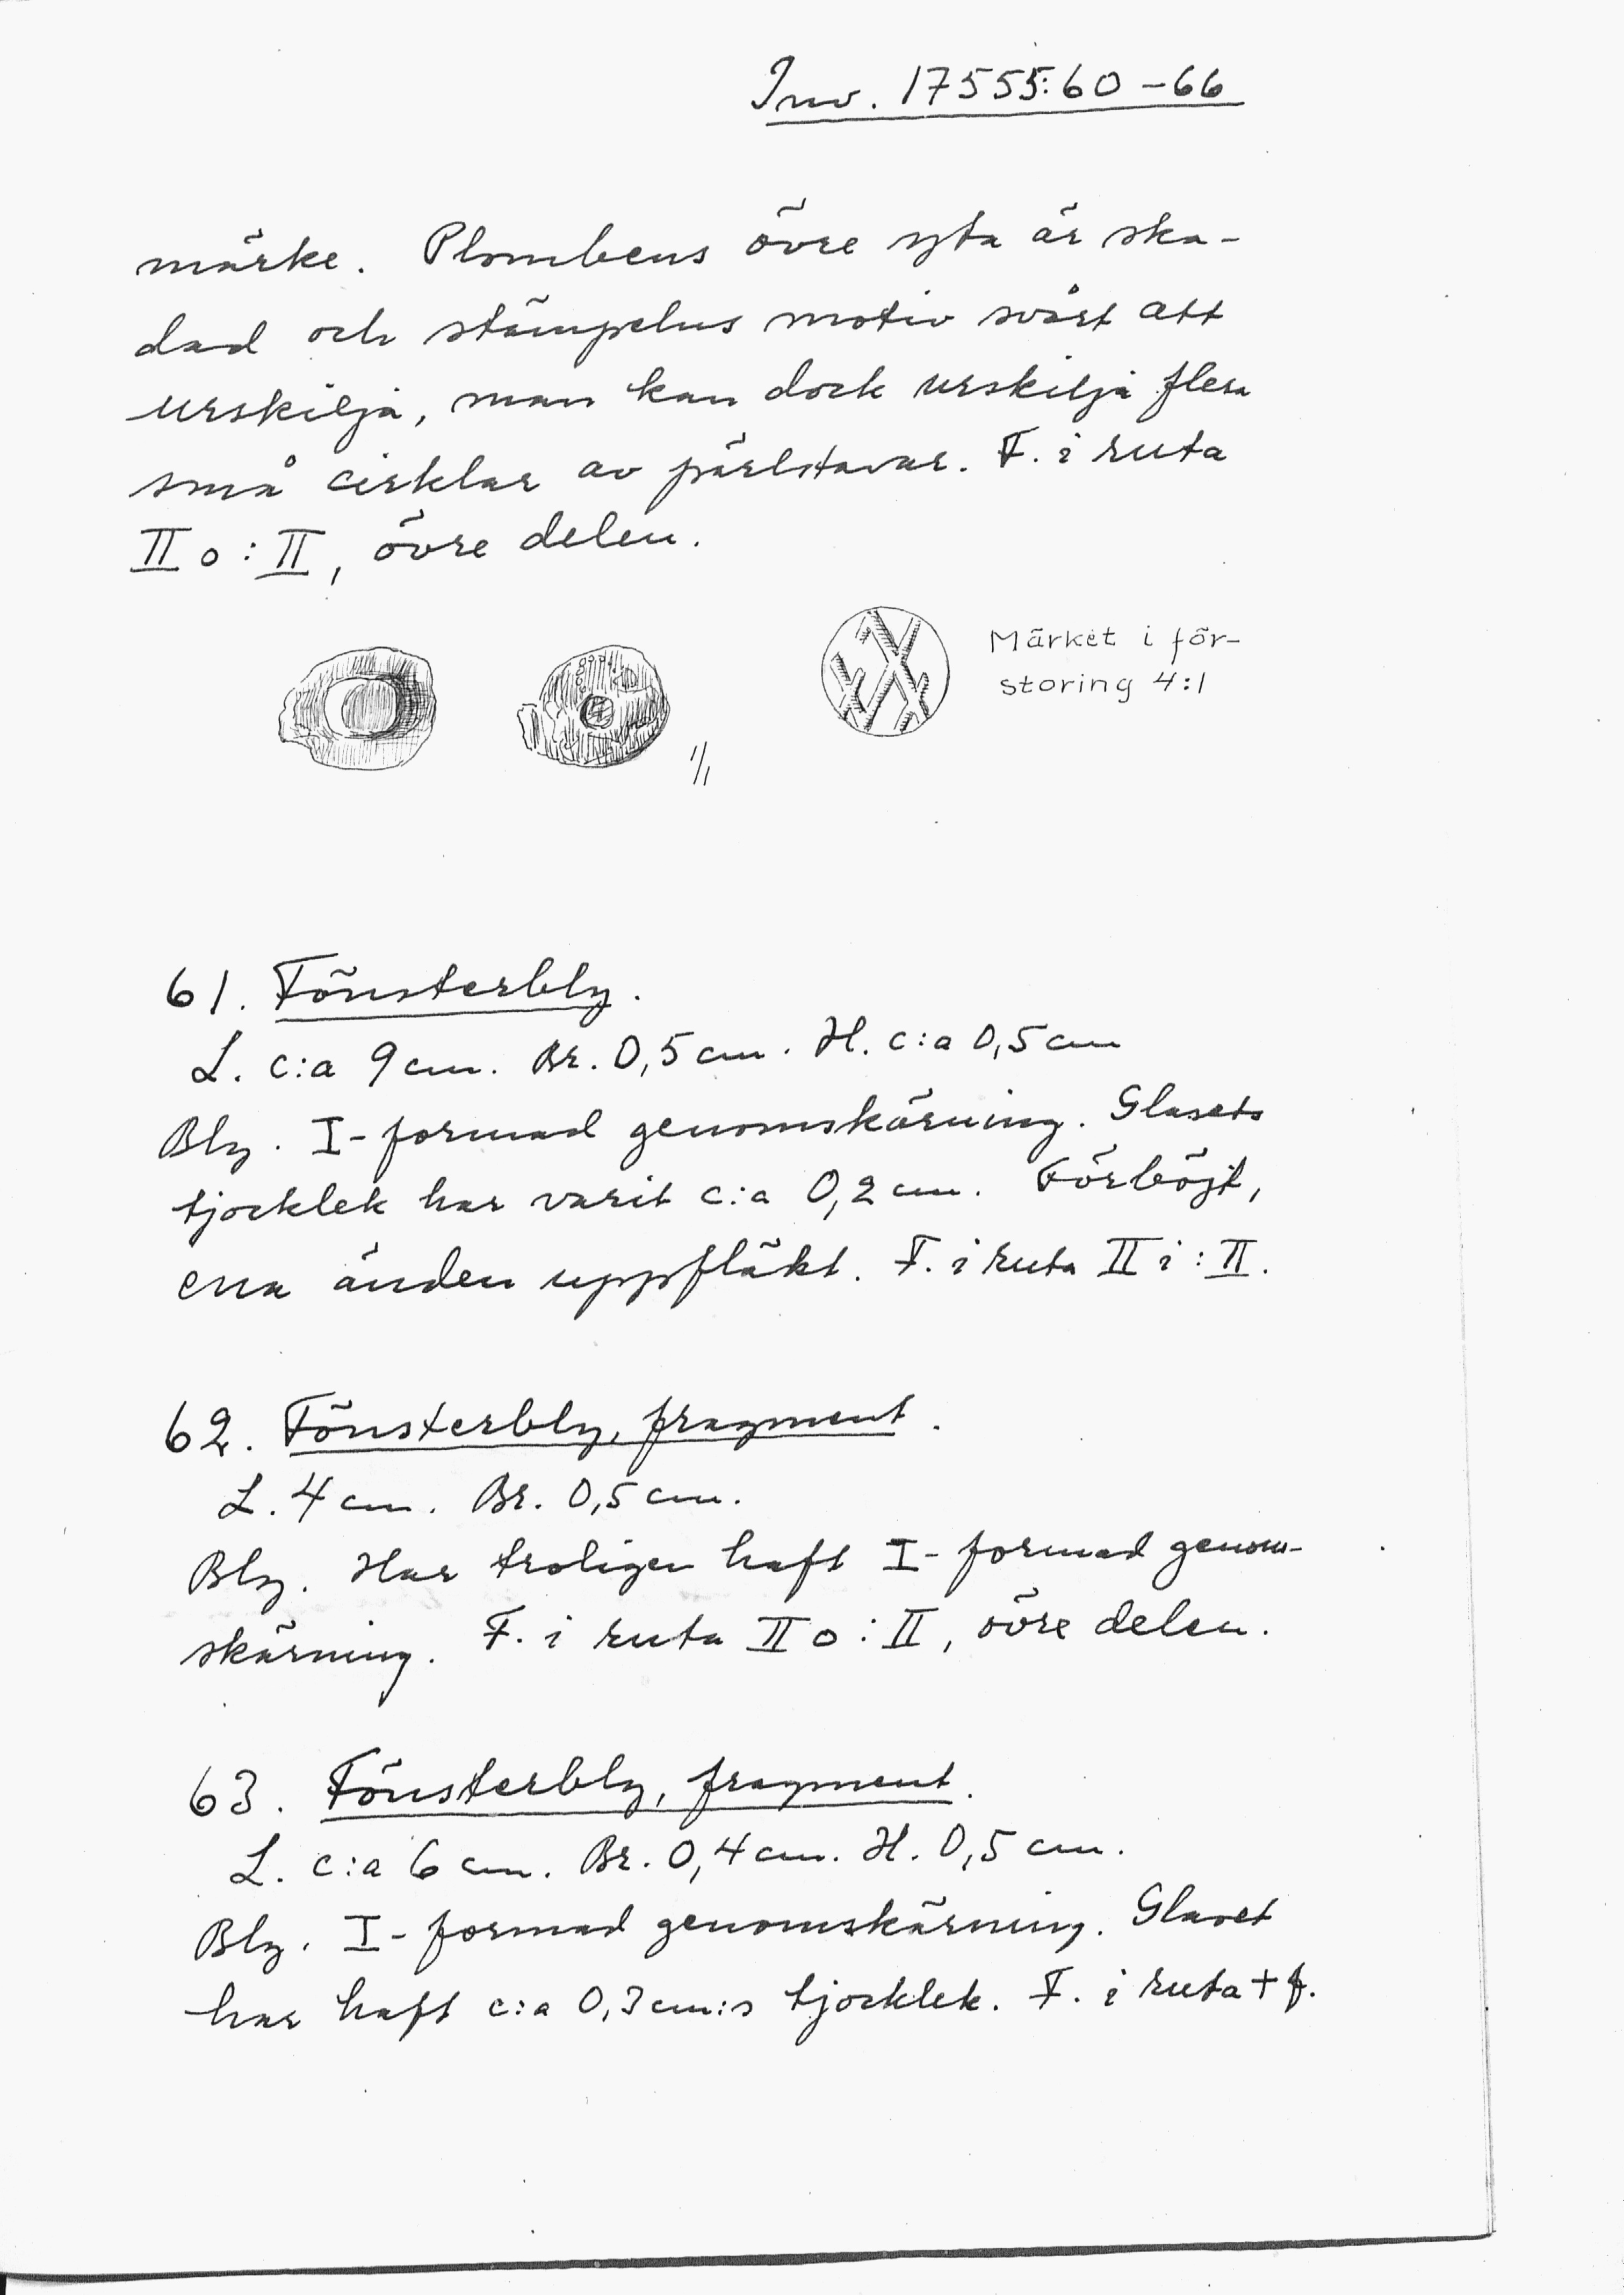 Inv. 17555:60-66
märke. Plombens övre yta är ska-
dad och stämpelns motiv svårt att
urskilja, man kan dock urskilja flera
små cirklar av pärlstavar. F. i ruta
II o : II, övre delen.
Märket i för-
storing 4:1
1/1
61. Fönsterbly.
L. c:a 9 cm. Br. 0,5 cm. H. c:a 0,5 cm
Bly. I-formad genomskärning. Glasets
tjocklek har varit c:a 0,2 cm. Förböjt,
ena änden uppfläkt. F. i ruta II i : II.
62. Fönsterbly, fragment.
L. 4 cm. Br. 0,5 cm.
Bly. Har troligen haft I-formad genom-
skärning. F. i ruta II o : II, övre delen.
63. Fönsterbly, fragment.
L. c:a 6 cm. Br. 0,4 cm. H. 0,5 cm.
Bly. I-formad genomskärning. Glaset
har haft c:a 0,3 cm:s tjocklek. F. i ruta + f.